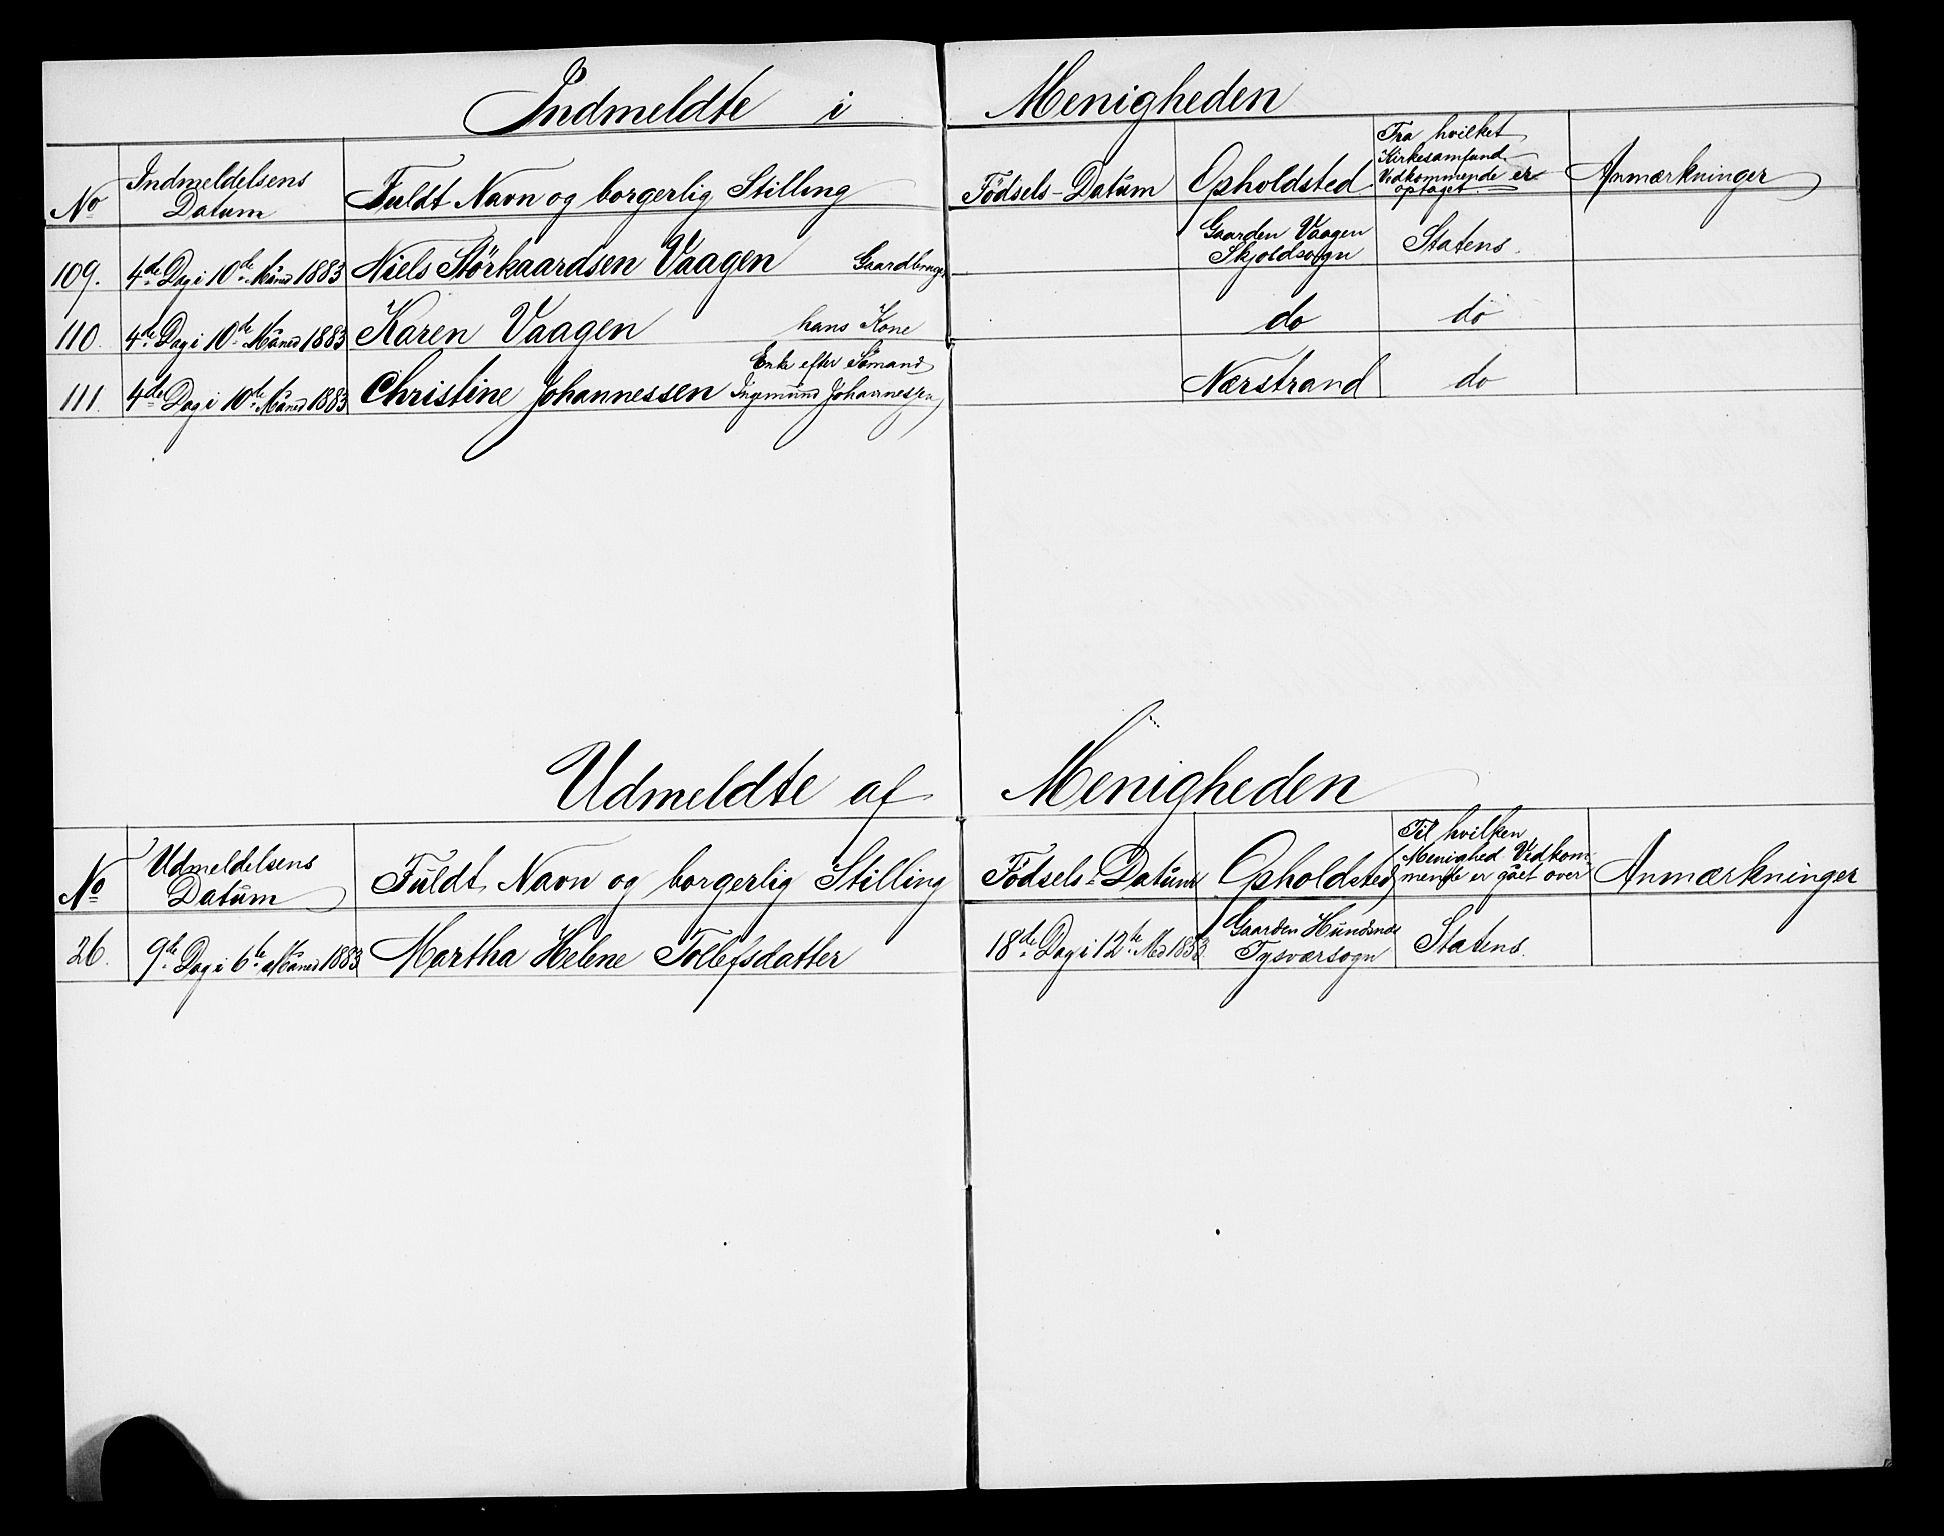 Indmeldte i Menigheden
No
Indmeldelsens
Datum
Fuldt Navn og borgerlig Stilling
Födsels-Datum
Opholdsted
Fra hvilket
Kirkesamfund
Vedkommende er
optaget
Anmærkninger
109. 4de Dag i 10de Måned 1883 Niels Störkaardsen Vaagen Gaardbruger
Gaarden Vaagen
Skjoldsogn
Statens.
110. 4de Dag i 10de Måned 1883 Karen Vaagen hans Kone do do
111. 4de Dag i 10de Måned 1883 Christine Johannessen
Enke efter Sömand
Ingemund Johannessen
Nærstrand do
Udmeldte af Menigheden
No
Udmeldelsens
Datum
Fuldt Navn og borgerlig Stilling
Födsels-Datum
Opholdsted
Til hvilken
Menighed Vedkom-
mende er gået over
Anmærkninger
26. 9de Dag i 6te Måned 1883 Martha Helene Tollefsdatter 18de Dag i 12te Md
Gaarden
Tysværsogn
Statens.